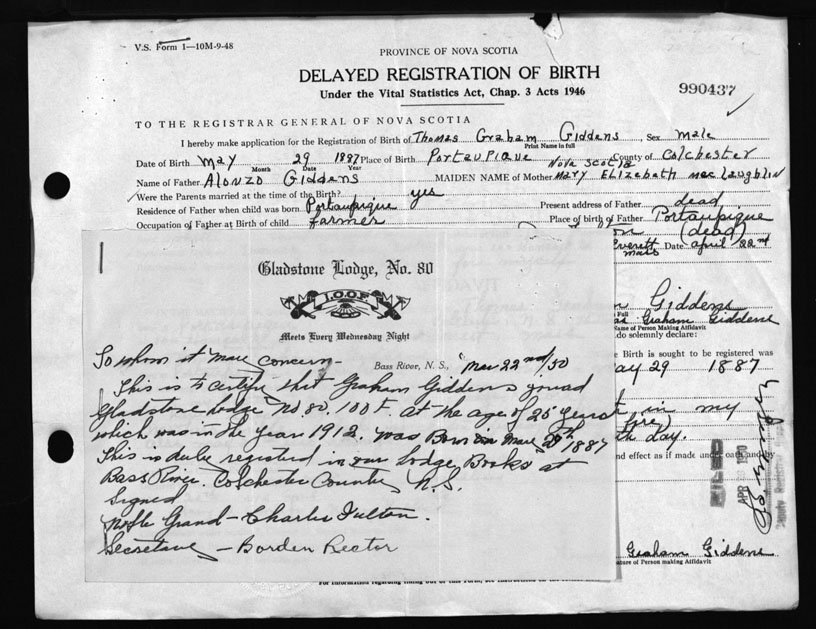 V.S. Form 1—10M-9-48
PROVINCE OF NOVA SCOTIA
DELAYED REGISTRATION OF BIRTH
Under the Vital Statistics Act, Chap. 3 Acts 1946
990437
TO THE REGISTRAR GENERAL OF NOVA SCOTIA
I hereby make application for the Registration of Birth of Thomas Graham Giddens, Sex male
Print Name in full
Date of Birth May 29 1887 Place of Birth Portaupique Nova Scotia County of Colchester
Month Date Year
Name of Father Alonzo Giddens MAIDEN NAME of Mother Mary Elizabeth MacLaughlin
Were the Parents married at the time of the Birth? yes
Residence of Father when child was born Portaupique Present address of Father dead
Occupation of Father at Birth of child farmer Place of birth of Father Portaupique
(dead)
Everett Mass Date april 22nd
Giddens
Full
Graham Giddens
Name of Person Making Affidavit
do solemnly declare:
Birth is sought to be registered was
May 29 1887
in my
th day.
and effect as if made under oath and by
FILED
APR 1950
Graham Giddens
Signature of Person making Affidavit
Gladstone Lodge, No. 80
I.O.O.F.
Meets Every Wednesday Night
Bass River, N. S., Mar 22nd/50
To whom it may concern—
This is to certify that Graham Giddens joined
Gladstone lodge No 80. I O O F. at the age of 25 years
which was in the year 1912. was Born in May 29th 1887
This is duly registered in our lodge Books at
Bass River. Colchester County N.S.
Signed
Noble Grand — Charles Fulton.
Secretary — Borden Rector